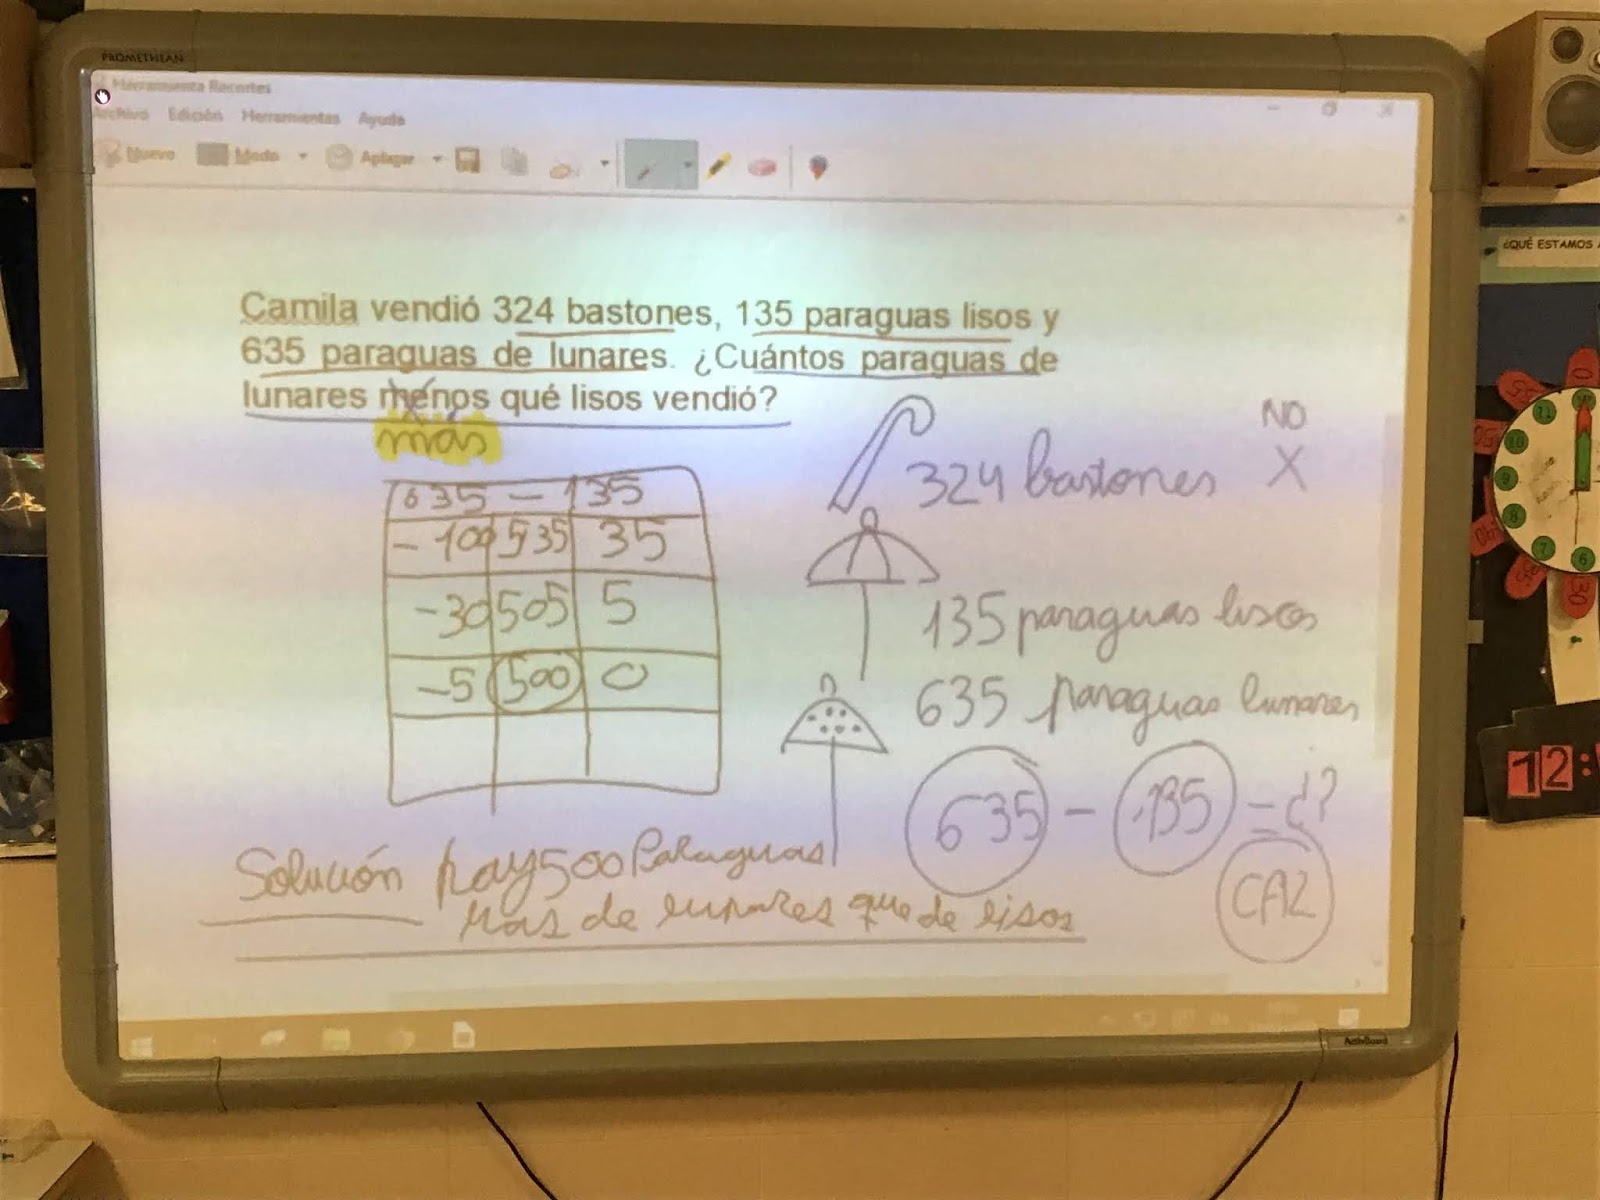 PROMETHEAN
Herramienta Recortes
Archivo Edición Herramientas Ayuda
Nuevo Modo Aplazar
Camila vendió 324 bastones, 135 paraguas lisos y
635 paraguas de lunares. ¿Cuántos paraguas de
lunares menos qué lisos vendió?
más
635 - 135
-100 535 35
-30 505 5
-5 500 0
NO
324 bastones X
135 paraguas lisos
635 paraguas lunares
635 - 135 = ¿?
CA2
Solución hay 500 Paraguas
mas de lunares que de lisos
ActivBoard
¿QUÉ ESTAMOS
12: